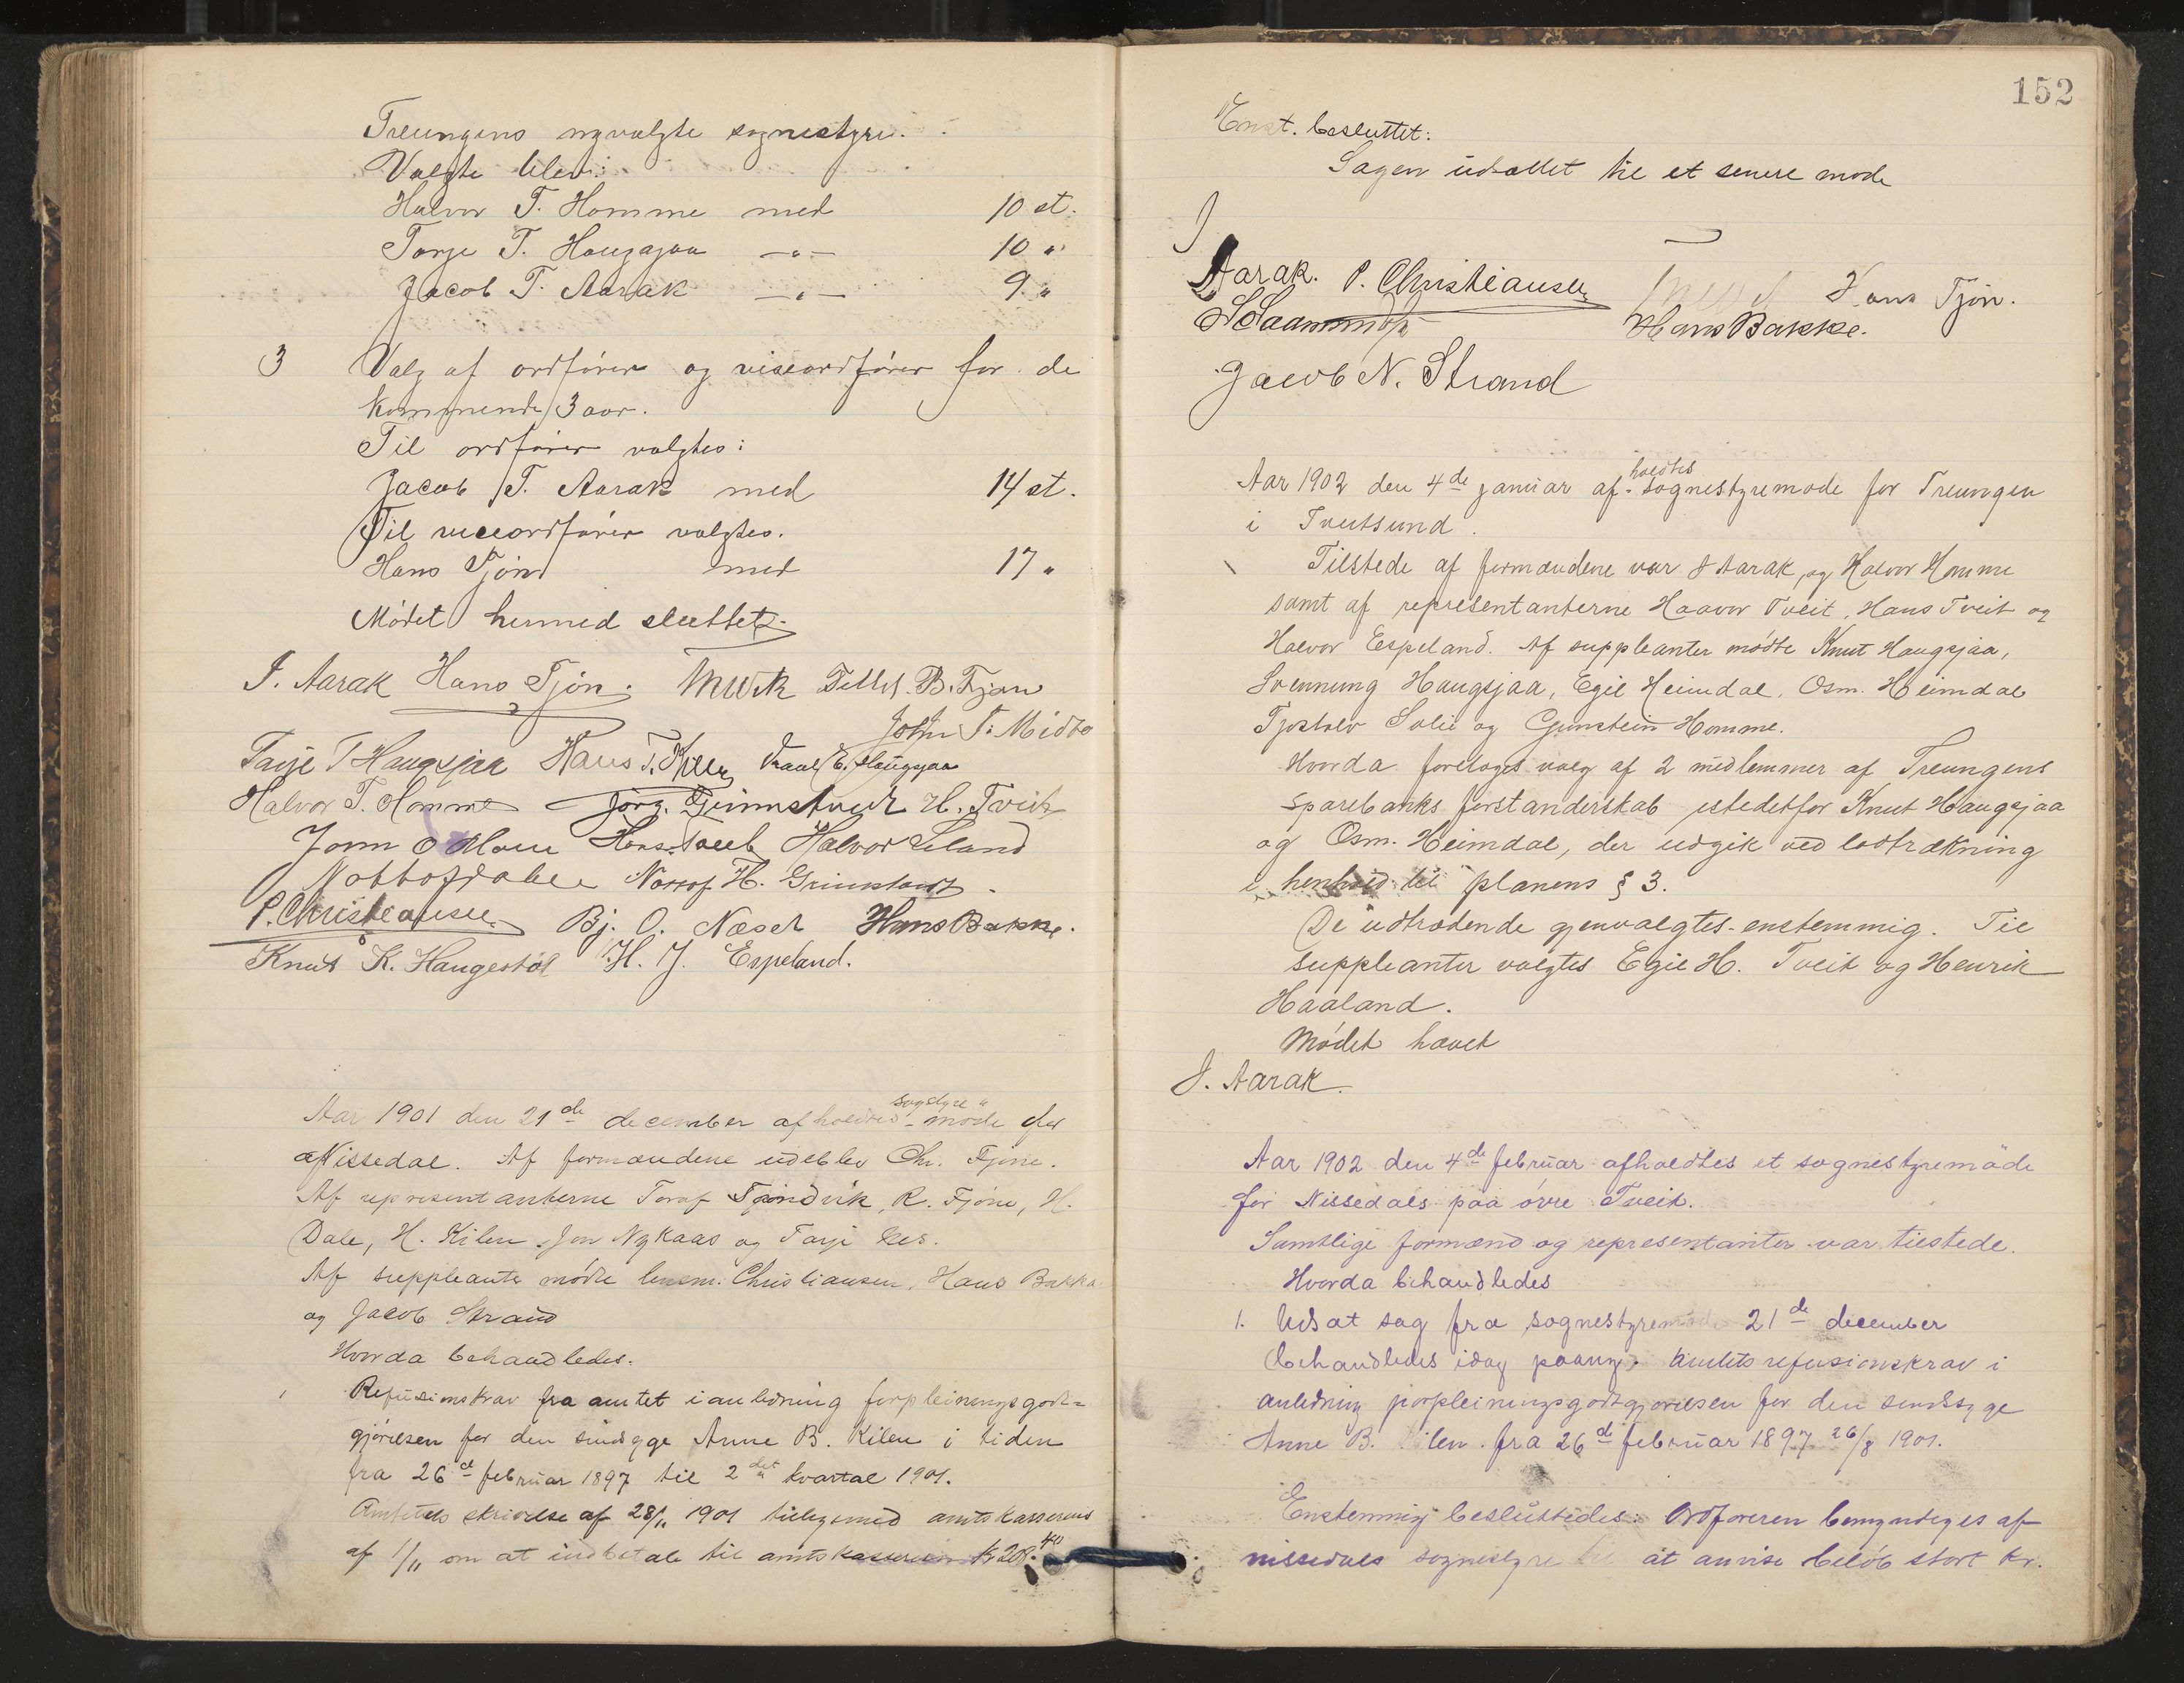 Treungens nyvalgte sognestyre.
Valgte blev:
Halvor T. Homme med 10 st.
Tarje T. Haugsjaa —"— 10 "
Jacob T. Aarak —"— 9 "
3 Valg af ordfører og viseordfører for de
kommende 3 aar.
Til ordfører valgtes:
Jacob T. Aarak med 14 st.
Til viceordfører valgtes.
Hans Tjøn med 17 "
Mødet hermed sluttet.
J. Aarak Hans Tjøn. Tellef B. Tjøn
John T. Midbø
Tarje T Haugsjaa Hans T. E. Haugsjaa
Halvor T. Homme Jørg. Grimstvedt H. Tveit
Hans Tveit Halvor Leland
H. Grimstvedt
P. Christiansen Bj. O. Næset Hans Bakke.
Knut K. Haugestøl H. J. Espeland.
Aar 1901 den 21de december afholdtes sogstyre" møde for
Nissedal. Af formændene udeblev Chr. Fjone.
Af representanterne Toraf Tjøndvik, R. Fjone, H.
Dale, H. Kilen, Jon Nykaas og Tarje
Af suppleanter mødte lensm. Christiansen, Hans Bakka
og Jacob Strand
Hvorda behandledes.
1 Refusionskrav fra amtet i anledning forpleiningsgodt-
gjørelsen for den sindsyge Anne B. Kilen i tiden
fra 26de februar 1897 til 2det kvartal 1901.
Amtets skrivelse af 28/11 1901 tilligemed amtskasserens
af 1/11 om at indbetale til amtskasseren kr 208.40
152
Enst. besluttet:
Sagen udsættet til et senere møde
J
Aarak. P. Christiansen Hans Tjøn.
Hans Bakke.
Jacob N. Strand
Aar 1902 den 4de januar af- holdtes sognestyremøde for Treungen
i Tveitsund.
Tilstede af formændene var J Aarak, og Halvor Homme
samt af representanterne Haavor Tveit, Hans Tveit og
Halvor Espeland. Af suppleanter mødte Knut Haugsjaa,
Svennung Haugsjaa, Egil Heimdal, Osm. Heimdal
Tjostolv Solli og Gunstein Homme.
Hvorda foretoges valg af 2 medlemmer af Treungens
sparebanks forstanderskab istedetfor Knut Haugsjaa
og Osm. Heimdal, der udgik ved lodtrækning
i henhold til planens § 3.
De udtrædende gjenvalgtes enstemmig. Til
suppleanter valgtes Egil H. Tveit og Henrik
Haaland.
Mødet hævet
J. Aarak.
Aar 1902 den 4de februar afholdtes et sognestyremøde
for Nissedals paa øvre Tveit.
Samtlige formænd og representanter var tilstede.
Hvorda behandledes
1. Udsat sag fra sognestyremøde 21de december
behandledes idag paany. Amtets refusionskrav i
anledning forpleiningsgodtgjørelsen for den sindssyge
Anne B. Kilen fra 26de februar 1897 26/8 1901.
Enstemmig besluttedes: Ordføreren bemyndiges af
nissedals sognestyre til at anvise beløb stort kr.